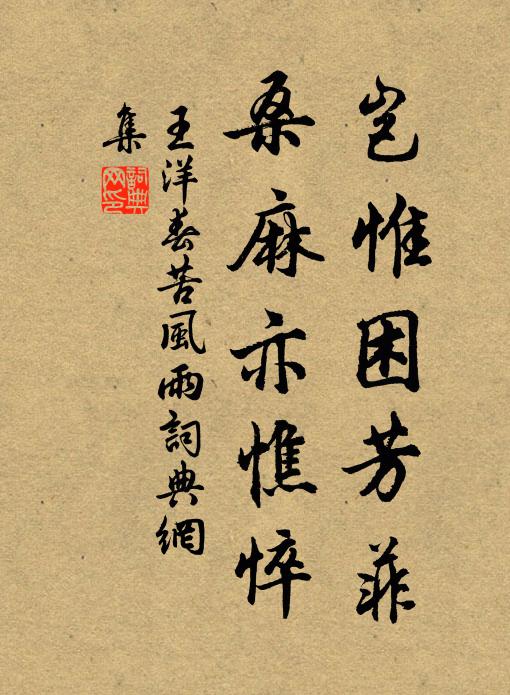 岂惟困芳菲
桑麻亦憔悴
王洋春苦風雨詞典網
集
詞典網印